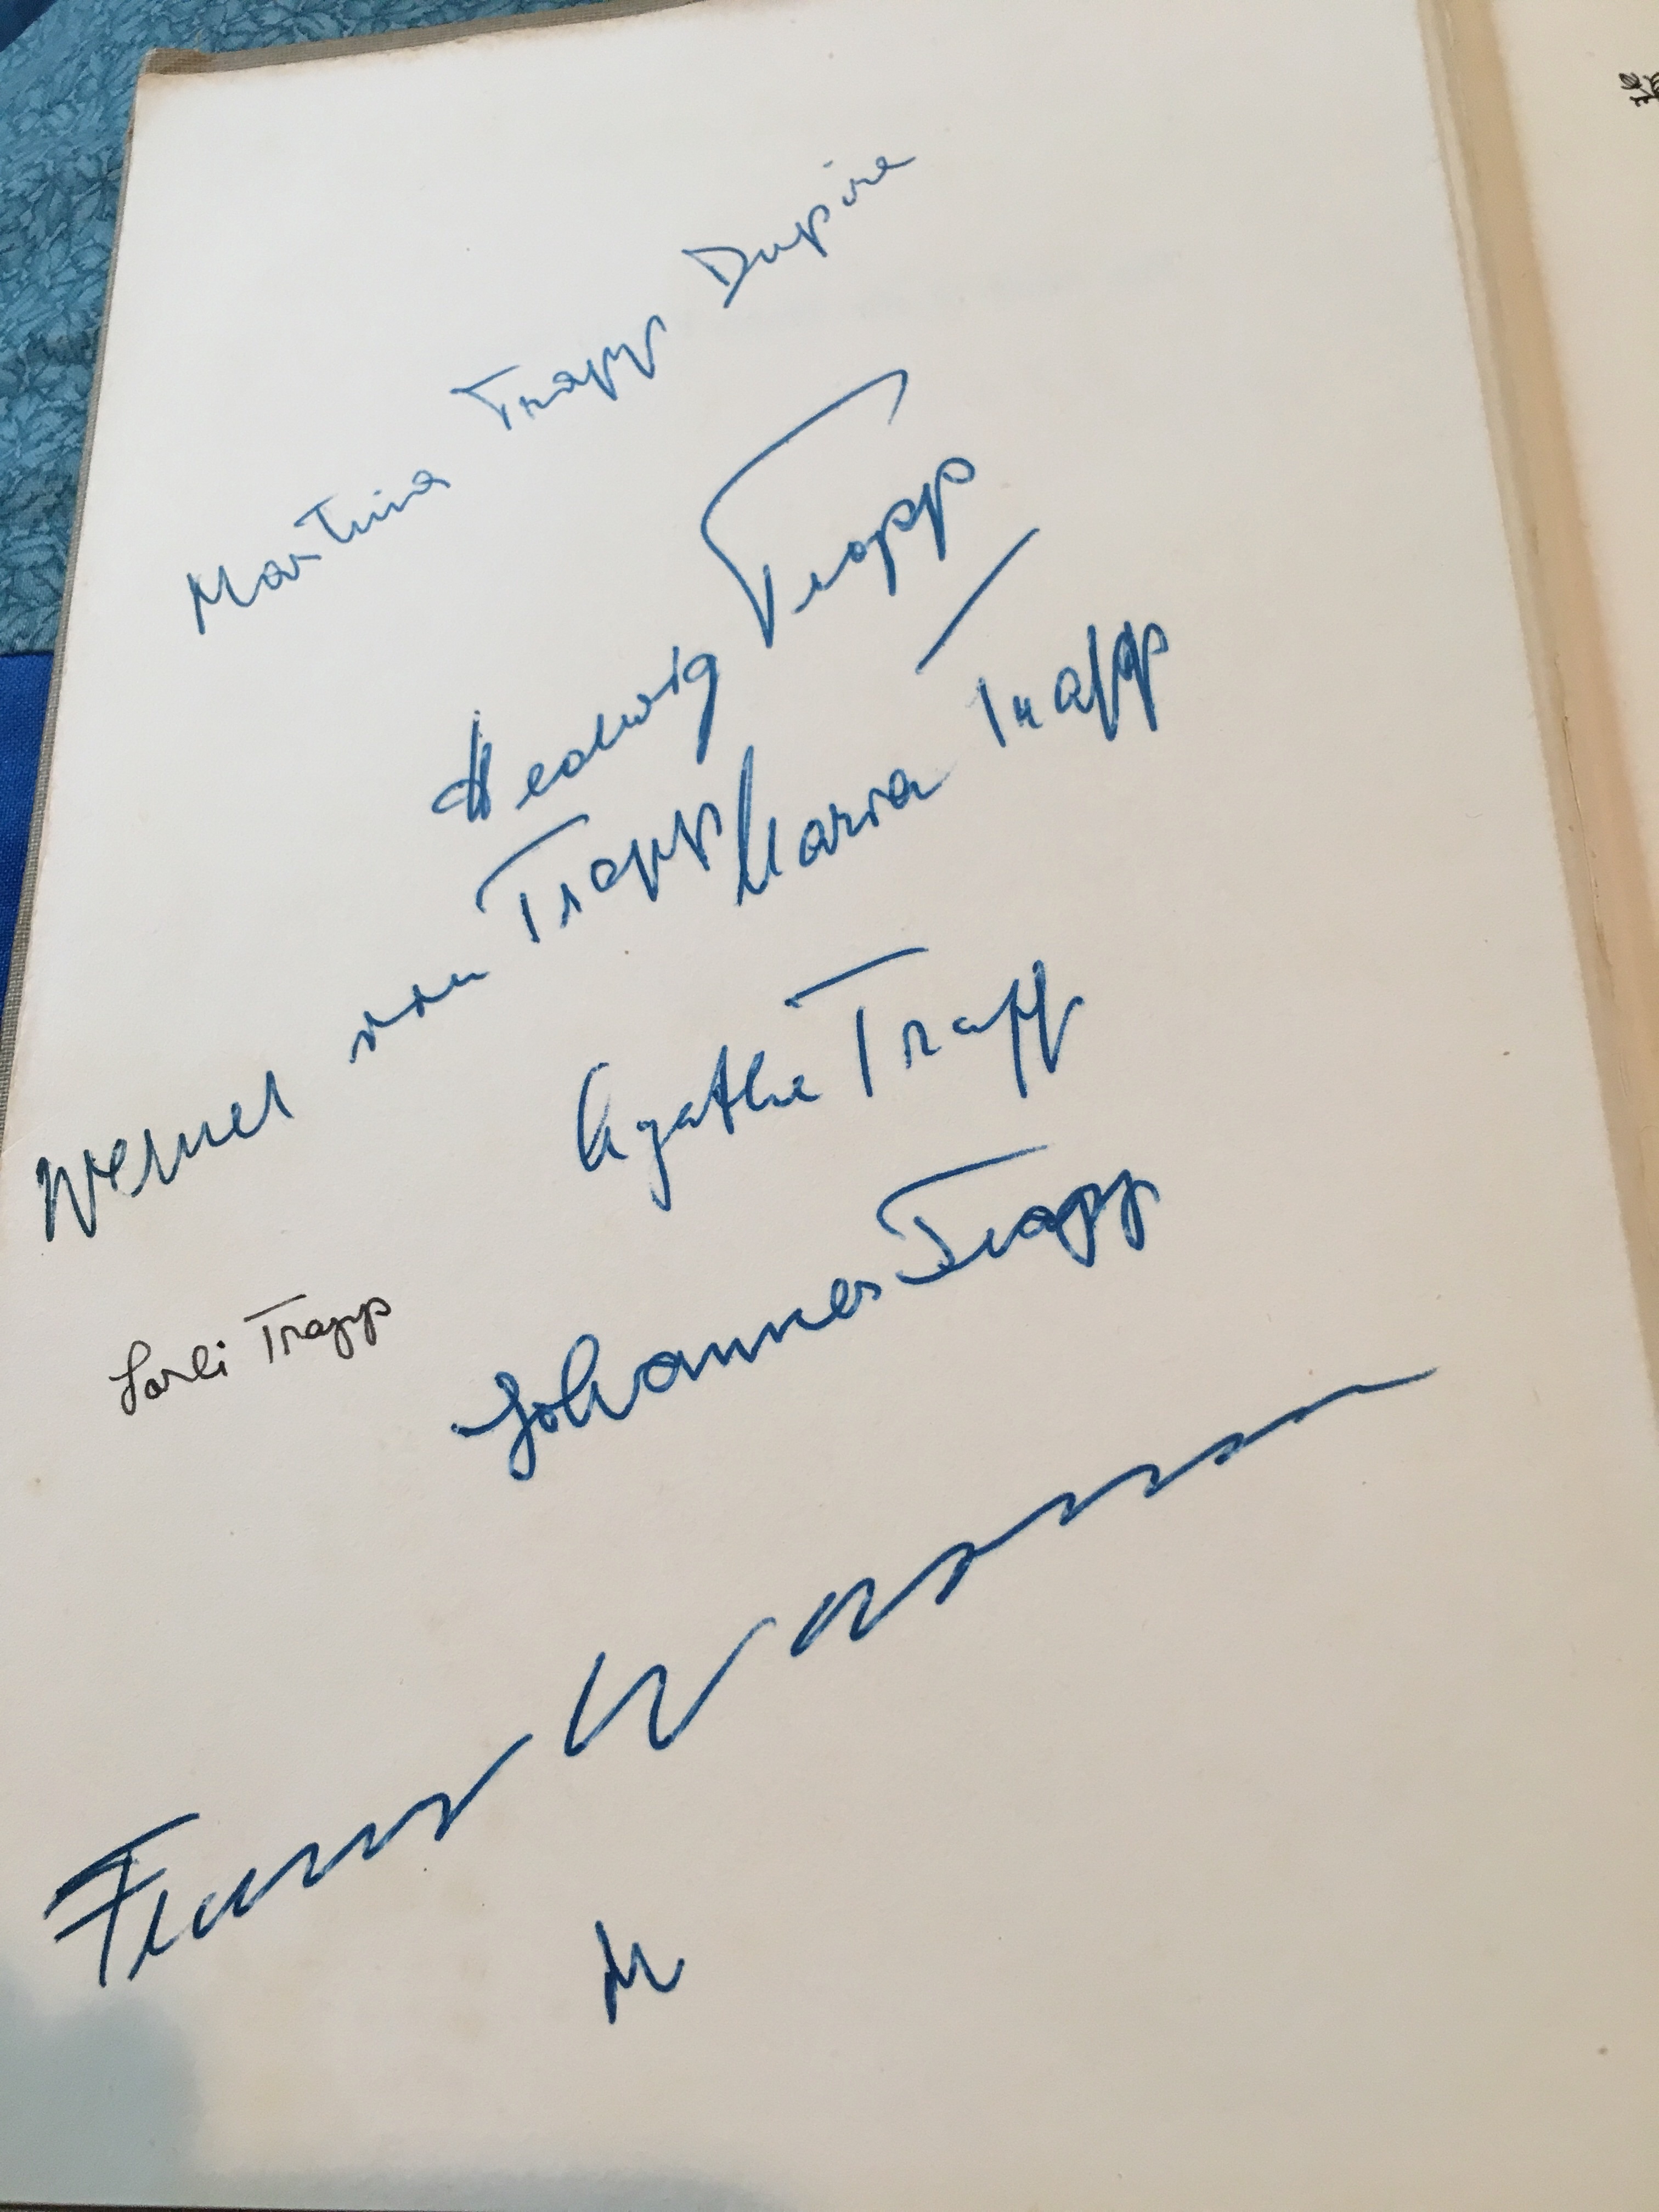 Martina Trapp Dupire
Hedwig Trapp
Maria Trapp
Werner von Trapp
Agathe Trapp
Johannes Trapp
Lorli Trapp
Franz Wasner